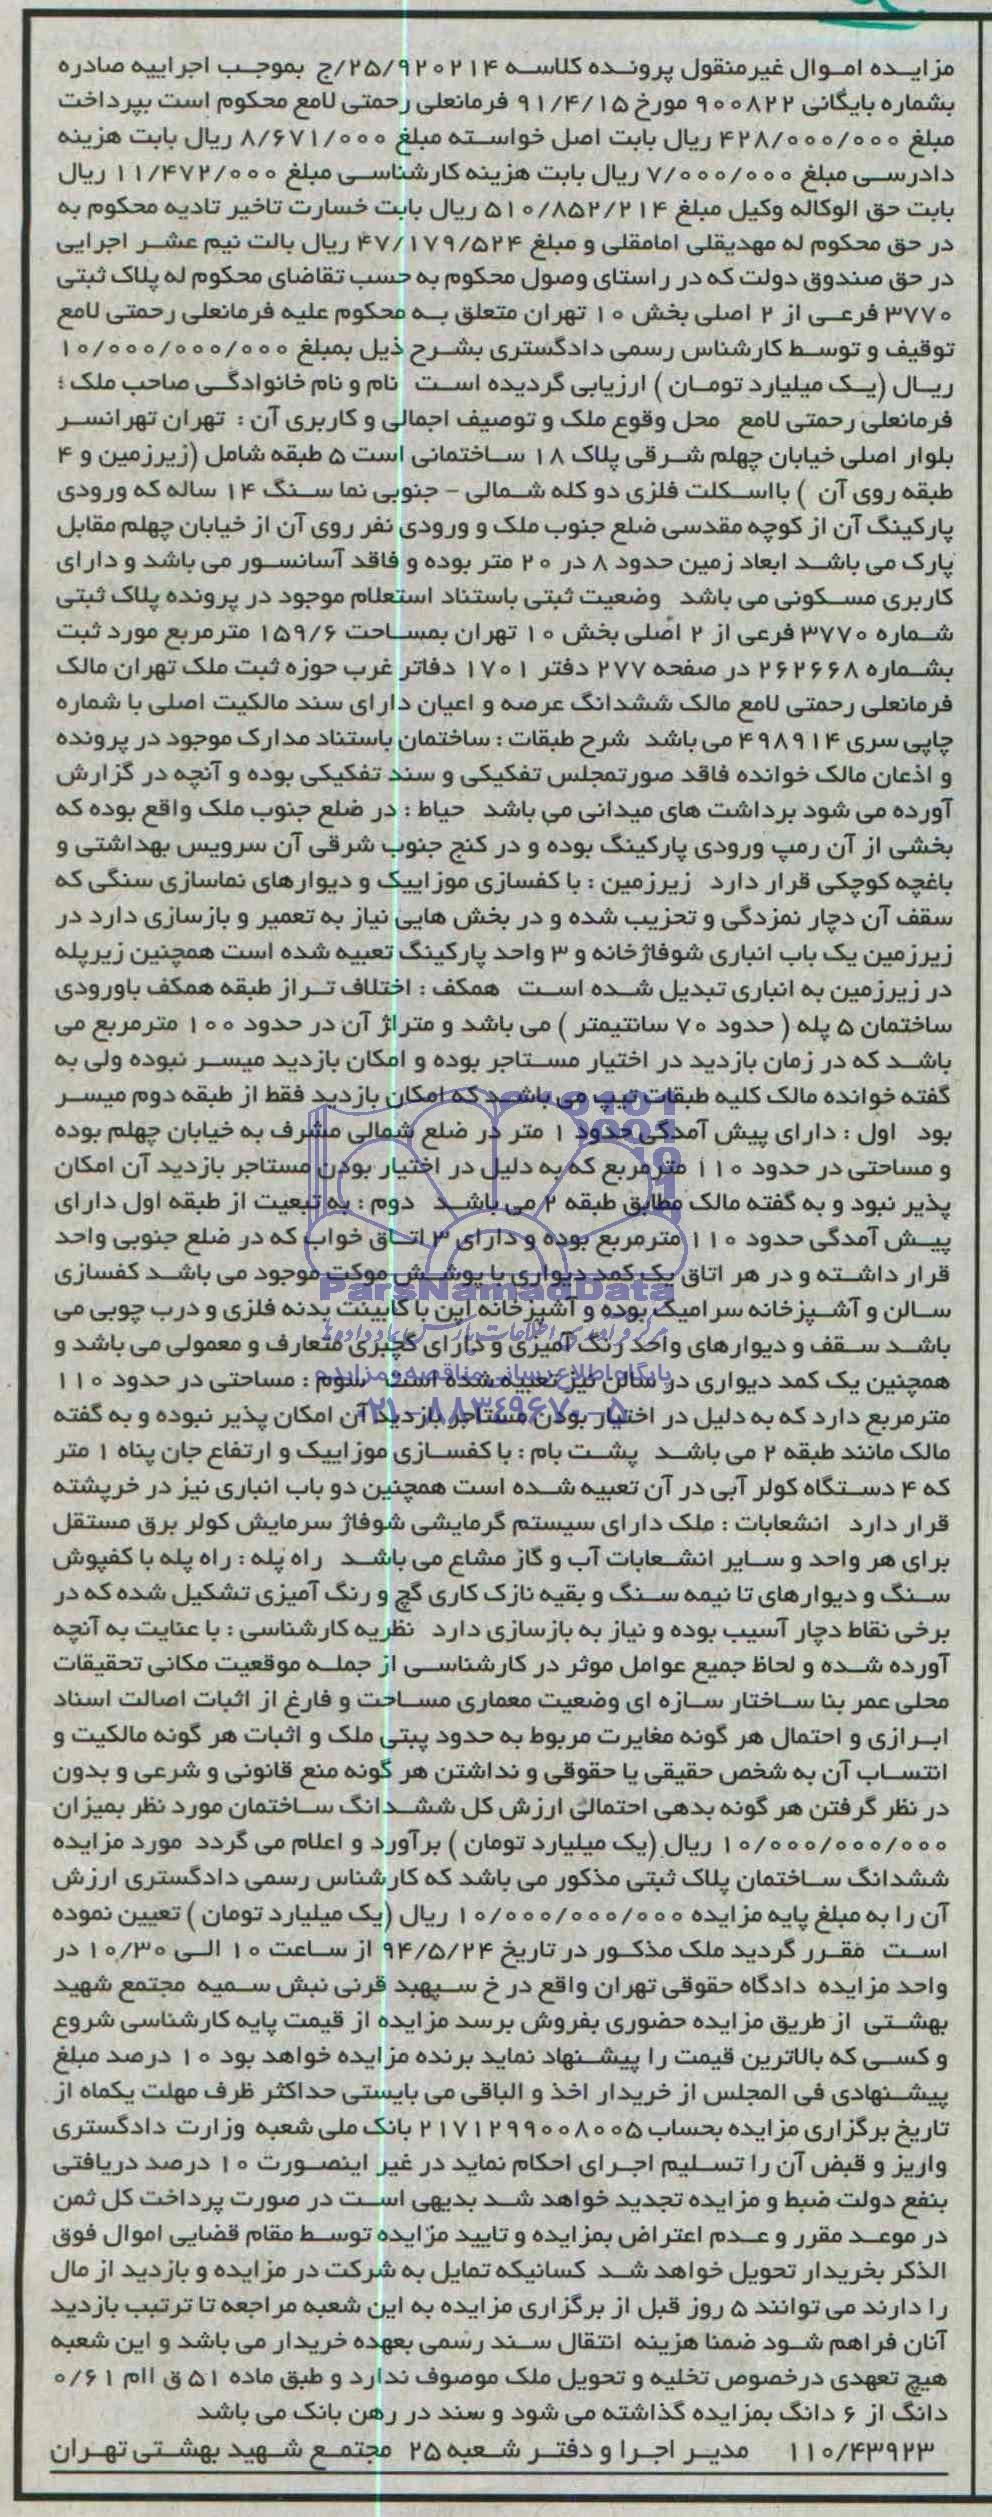 مزایـده امـوال غیرمنقول پرونـده کلاسـه ۲۵/۹۲۰۲۱۴/ج بموجـب اجراییه صادره
بشماره بایگانی ۹۰۰۸۲۲ مورخ ۹۱/۴/۱۵ فرمانعلی رحمتی لامع محکوم است بپرداخت
مبلغ ۴۲۸/۰۰۰/۰۰۰ ریال بابت اصل خواسـته مبلغ ۸/۶۷۱/۰۰۰ ریال بابت هزینه
دادرسـی مبلغ ۷/۰۰۰/۰۰۰ ریال بابت هزینه کارشناسـی مبلغ ۱۱/۴۷۲/۰۰۰ ریال
بابت حق الوکاله وکیل مبلغ ۵۱۰/۸۵۲/۲۱۴ ریال بابت خسارت تاخیر تادیه محکوم به
در حق محکوم له مهدیقلی امامقلی و مبلغ ۴۷/۱۷۹/۵۲۴ ریال بالت نیم عشـر اجرایی
در حق صندوق دولت که در راستای وصول محکوم به حسب تقاضای محکوم له پلاک ثبتی
۳۷۷۰ فرعـی از ۲ اصلی بخش ۱۰ تهران متعلق بـه محکوم علیه فرمانعلی رحمتی لامع
توقیف و توسـط کارشناس رسمی دادگستری بشـرح ذیل بمبلغ ۱۰/۰۰۰/۰۰۰/۰۰۰
ریـال (یـک میلیارد تومـان) ارزیابی گردیده اسـت نام و نام خانوادگـی صاحب ملک :
فرمانعلی رحمتی لامع محل وقوع ملک و توصیف اجمالی و کاربری آن : تهران تهرانسـر
بلوار اصلی خیابان چهلم شـرقی پلاک ۱۸ سـاختمانی است ۵ طبقه شامل (زیرزمین و ۴
طبقه روی آن ) بااسـکلت فلزی دو کله شـمالی - جنوبی نما سـنگ ۱۴ ساله که ورودی
پارکینگ آن از کوچه مقدسی ضلع جنوب ملک و ورودی نفر روی آن از خیابان چهلم مقابل
پارک می باشـد ابعاد زمین حدود ۸ در ۲۰ متر بوده و فاقد آسانسـور می باشد و دارای
کاربری مسـکونی می باشد وضعیت ثبتی باستناد استعلام موجود در پرونده پلاک ثبتی
شـماره ۳۷۷۰ فرعی از ۲ اصلی بخش ۱۰ تهران بمسـاحت ۱۵۹/۶ مترمربع مورد ثبت
بشـماره ۲۶۲۶۶۸ در صفحه ۲۷۷ دفتر ۱۷۰۱ دفاتر غرب حوزه ثبت ملک تهران مالک
فرمانعلی رحمتی لامع مالک ششدانگ عرصه و اعیان دارای سند مالکیت اصلی با شماره
چاپی سری ۴۹۸۹۱۴ می باشد شرح طبقات : ساختمان باستناد مدارک موجود در پرونده
و اذعان مالک خوانده فاقد صورتمجلس تفکیکی و سند تفکیکی بوده و آنچه در گزارش
آورده می شود برداشت های میدانی می باشد حیاط : در ضلع جنوب ملک واقع بوده که
بخشی از آن رمپ ورودی پارکینگ بوده و در کنج جنوب شرقی آن سرویس بهداشتی و
باغچه کوچکی قرار دارد زیرزمین : با کفسازی موزاییک و دیوارهای نماسازی سنگی که
سقف آن دچار نمزدگی و تحزیب شده و در بخش هایی نیاز به تعمیر و بازسازی دارد در
زیرزمین یک باب انباری شوفاژخانه و ۳ واحد پارکینگ تعبیه شده است همچنین زیرپله
در زیرزمین به انباری تبدیل شـده اسـت همکف : اختلاف تـراز طبقه همکف باورودی
ساختمان ۵ پله ( حدود ۷۰ سانتیمتر ) می باشد و متراژ آن در حدود ۱۰۰ مترمربع می
باشـد که در زمان بازدید در اختیار مسـتاجر بوده و امکان بازدید میسـر نبوده ولی به
گفته خوانده مالک کلیه طبقات تیپ می باشـد که امکان بازدید فقط از طبقه دوم میسـر
بود اول : دارای پیش آمدگی حدود ۱ متر در ضلع شمالی مشرف به خیابان چهلم بوده
و مساحتی در حدود ۱۱۰ مترمربع که به دلیل در اختیار بودن مستاجر بازدید آن امکان
پذیر نبود و به گفته مالک مطابق طبقه ۲ می باشـد دوم : به تبعیت از طبقه اول دارای
پیـش آمدگی حدود ۱۱۰ مترمربع بوده و دارای ۳ اتـاق خواب که در ضلع جنوبی واحد
قرار داشـته و در هر اتاق یک کمد دیواری با پوشـش موکت موجود می باشـد کفسازی
سـالن و آشـپزخانه سرامیک بوده و آشپزخانه اپن با کابینت بدنه فلزی و درب چوبی می
باشـد سـقف و دیوارهای واحد رنگ آمیزی و دارای گچبری متعارف و معمولی می باشد و
همچنین یک کمد دیواری در سالن نیز تعبیه شده است سوم : مساحتی در حدود ۱۱۰
مترمربع دارد که به دلیل در اختیار بودن مستاجر بازدید آن امکان پذیر نبوده و به گفته
مالک مانند طبقه ۲ می باشـد پشـت بام : با کفسـازی موزاییک و ارتفاع جان پناه ۱ متر
که ۴ دسـتگاه کولر آبی در آن تعبیه شـده است همچنین دو باب انباری نیز در خرپشته
قرار دارد انشعابات : ملک دارای سیستم گرمایشی شوفاژ سرمایش کولر برق مستقل
برای هر واحد و سـایر انشـعابات آب و گاز مشاع می باشـد راه پله : راه پله با کفپوش
سـنگ و دیوارهای تا نیمه سـنگ و بقیه نازک کاری گچ و رنگ آمیزی تشکیل شده که در
برخی نقاط دچار آسیب بوده و نیاز به بازسازی دارد نظریه کارشناسی : با عنایت به آنچه
آورده شـده و لحاظ جمیع عوامل موثر در کارشناسـی از جملـه موقعیت مکانی تحقیقات
محلی عمر بنا سـاختار سـازه ای وضعیت معماری مسـاحت و فارغ از اثبات اصالت اسناد
ابـرازی و احتمال هر گونه مغایرت مربوط به حدود پبتی ملک و اثبات هر گونه مالکیت و
انتسـاب آن به شخص حقیقی یا حقوقی و نداشتن هر گونه منع قانونی و شرعی و بدون
در نظر گرفتن هر گونه بدهی احتمالی ارزش کل ششـدانگ سـاختمان مورد نظر بمیزان
۱۰/۰۰۰/۰۰۰/۰۰۰ ریال (یک میلیارد تومان ) برآورد و اعلام می گردد مورد مزایده
ششدانگ سـاختمان پلاک ثبتی مذکور می باشد که کارشناس رسمی دادگستری ارزش
آن را به مبلغ پایه مزایده ۱۰/۰۰۰/۰۰۰/۰۰۰ ریال (یک میلیارد تومان ) تعیین نموده
اسـت مقـرر گردید ملک مذکـور در تاریخ ۹۴/۵/۲۴ از سـاعت ۱۰ الـی ۱۰/۳۰ در
واحد مزایده دادگاه حقوقی تهران واقع در خ سـپهبد قرنی نبش سـمیه مجتمع شهید
بهشـتی از طریق مزایده حضوری بفروش برسد مزایده از قیمت پایه کارشناسی شروع
و کسـی که بالاترین قیمت را پیشـنهاد نماید برنده مزایده خواهد بود ۱۰ درصد مبلغ
پیشـنهادی فی المجلس از خریدار اخذ و الباقی می بایستی حداکثر ظرف مهلت یکماه از
تاریخ برگزاری مزایده بحساب ۲۱۷۱۲۹۹۰۰۸۰۰۵ بانک ملی شعبه وزارت دادگستری
واریز و قبض آن را تسـلیم اجـرای احکام نماید در غیر اینصـورت ۱۰ درصد دریافتی
بنفع دولت ضبط و مزایده تجدید خواهد شـد بدیهی اسـت در صورت پرداخت کل ثمن
در موعـد مقرر و عـدم اعتراض بمزایده و تایید مزایده توسـط مقام قضایی اموال فوق
الذکر بخریدار تحویل خواهد شـد کسانیکه تمایل به شرکت در مزایده و بازدید از مال
را دارند می توانند ۵ روز قبل از برگزاری مزایده به این شعبه مراجعه تا ترتیب بازدید
آنان فراهم شـود ضمنا هزینه انتقال سـند رسمی بعهده خریدار می باشد و این شعبه
هیچ تعهدی درخصوص تخلیه و تحویل ملک موصوف ندارد و طبق ماده ۵۱ ق اام ۰/۶۱
دانگ از ۶ دانگ بمزایده گذاشته می شود و سند در رهن بانک می باشد
۱۱۰/۴۳۹۲۳ مدیـر اجـرا و دفتـر شـعبه ۲۵ مجتمـع شـهید بهشـتی تهـران
ParsNamadData
پایگاه اطلاع رسانی مناقصه و مزایده
۰۲۱-۸۸۳۴۹۶۷۰-۵